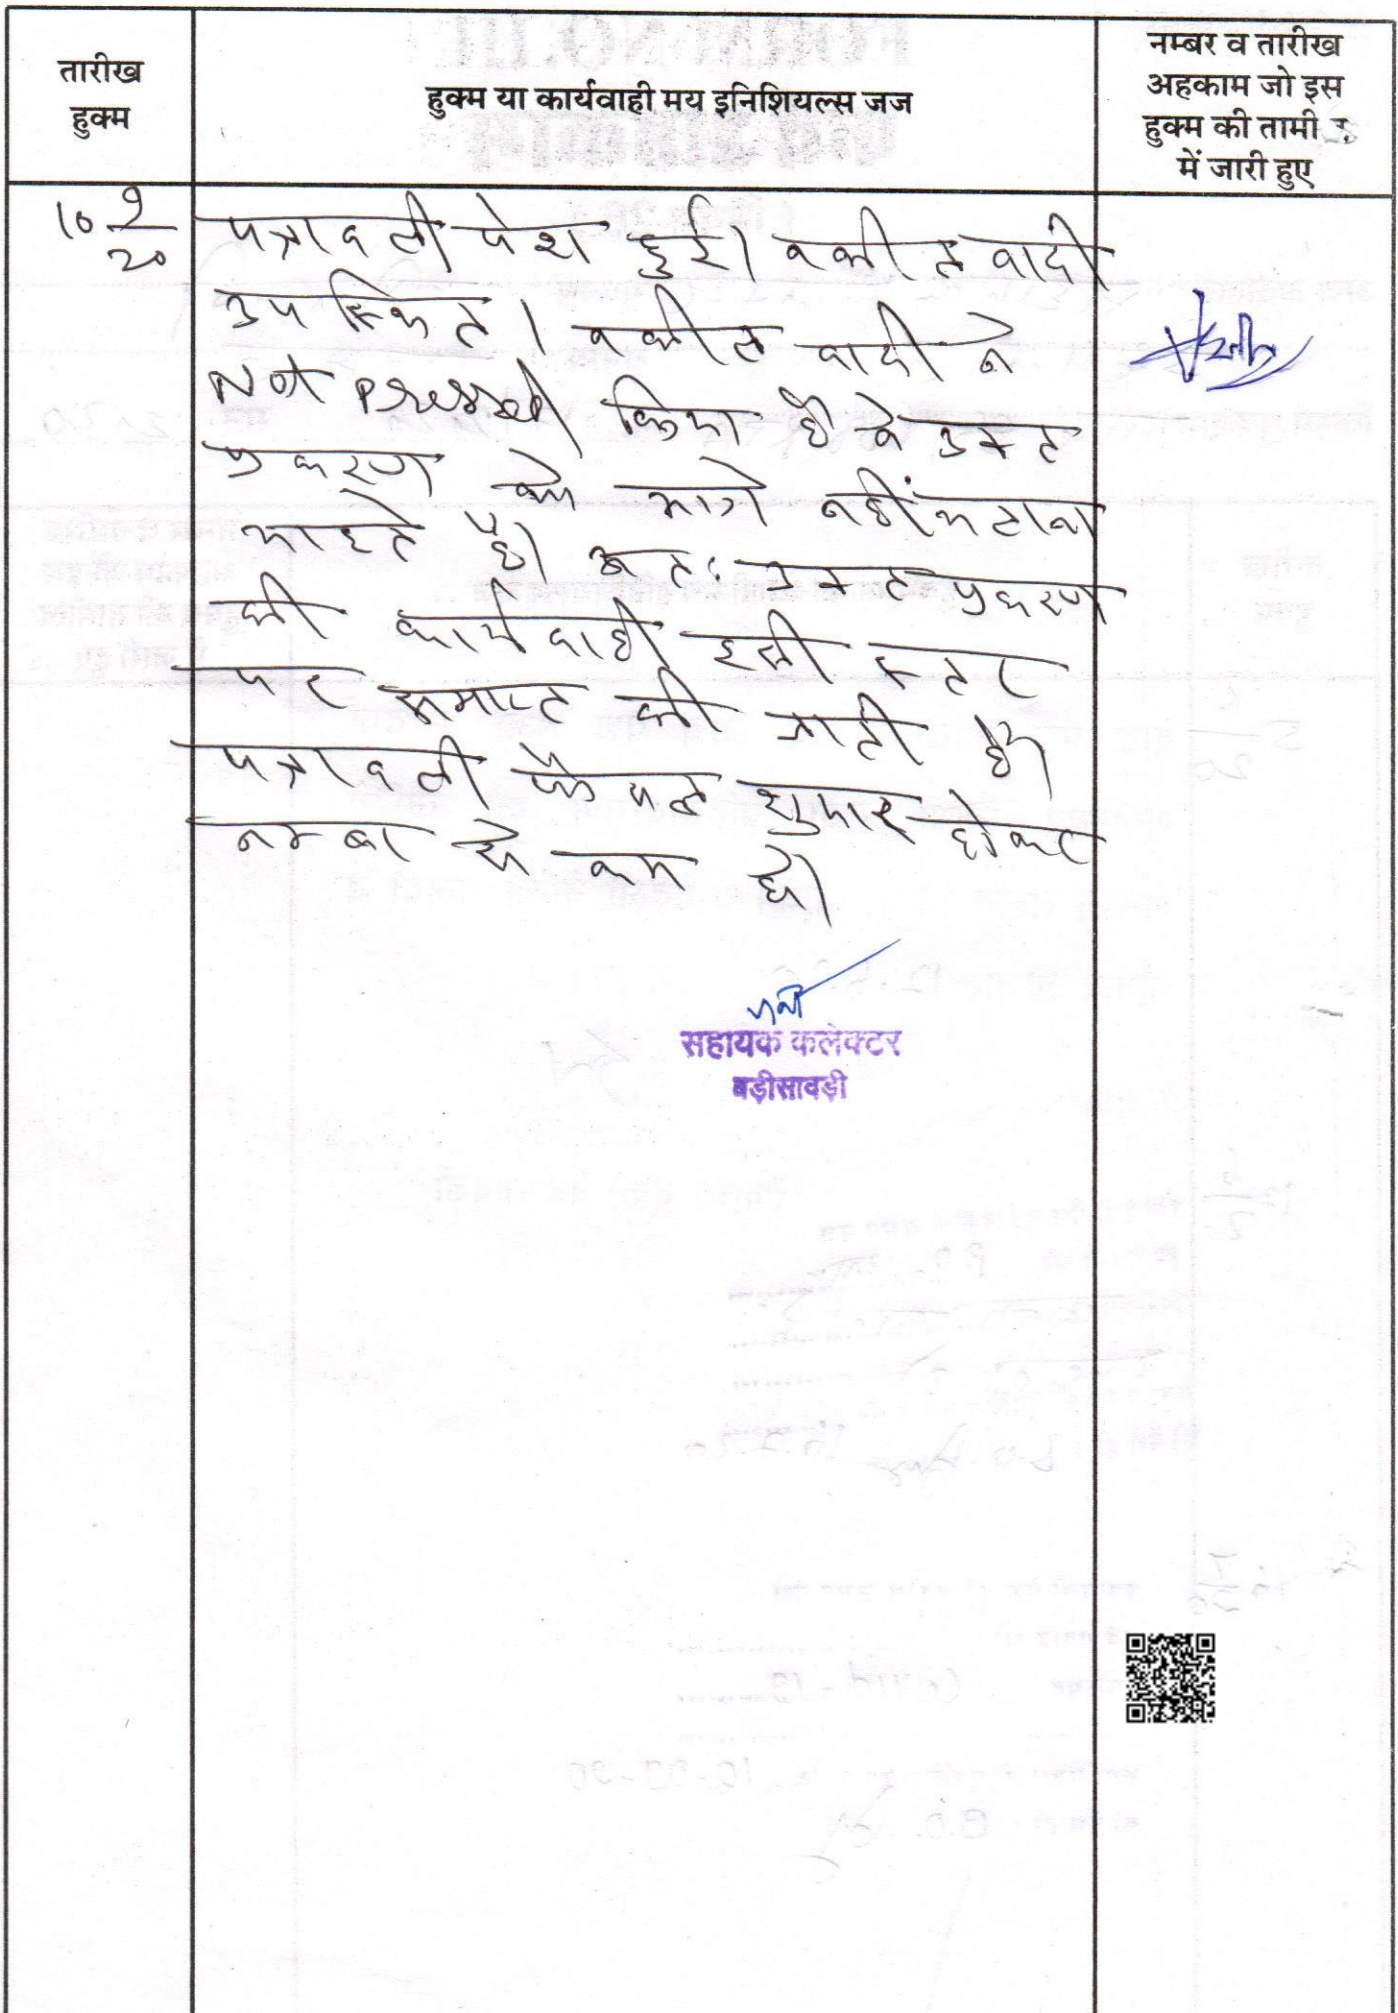 तारीख
हुक्म
हुक्म या कार्यवाही मय इनिशियल्स जज
नम्बर व तारीख
अहकाम जो इस
हुक्म की तामी
में जारी हुए
10 9/20
पत्रावली पेश हुई। वकील वादी
उपस्थित। वकील वादी ने
Not Pressed किया है वे उक्त
प्रकरण को आगे नहीं चलाना
चाहते है। अतः उक्त प्रकरण
की कार्यवाही इसी स्तर
पर समाप्त की जाती है।
पत्रावली फैसल शुमार होकर
नम्बर से कम हो।
सहायक कलेक्टर
बड़ीसादड़ी